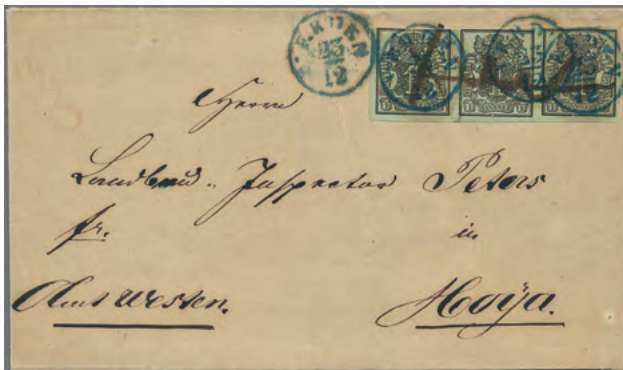 VERDEN
23
12
Herrn
Landbau-Inspector Peters
fr. in
Amt Westen. Hoÿa.